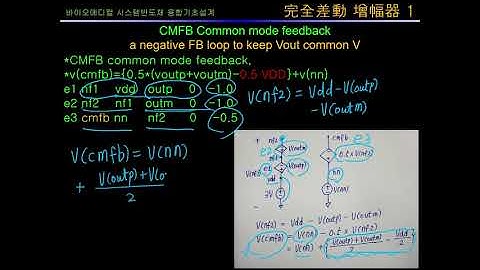 바이오메디컬 시스템반도체 융합기초설계
完全差動 增幅器 1
CMFB Common mode feedback
a negative FB loop to keep Vout common V
*CMFB common mode feedback,
*v(cmfb)={0.5*(voutp+voutm)-0.5 VDD}+v(nn)
e1 nf1 vdd outp 0 -1.0
e2 nf2 nf1 outm 0 -1.0
e3 cmfb nn nf2 0 -0.5
V(nf2) = Vdd - V(outp)
- V(outm)
V(cmfb) = V(nn)
+ V(outp)+V(o
2
nf2
e2
V(outm)
nf1
e1
V(outp)
vdd
2V
cmfb
e3
0.5 x V(nf2)
nn
V(nn)
V(nf2) = Vdd - V(outp) - V(outm)
V(cmfb) = V(nn) - 0.5 x V(nf2)
= V(nn) + V(outp)+V(outm) - Vdd
2 2